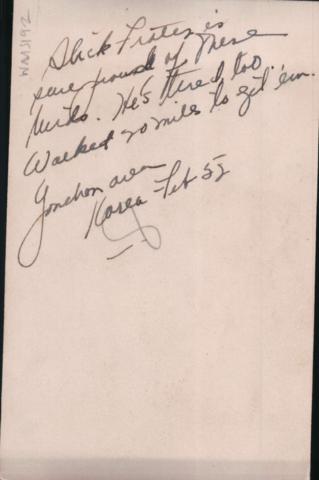 WMS192
Slick Prater is
sure proud of these
birds. He's tired, too.
Walked 20 miles to git 'em.
Yonchon area
Korea Feb 52